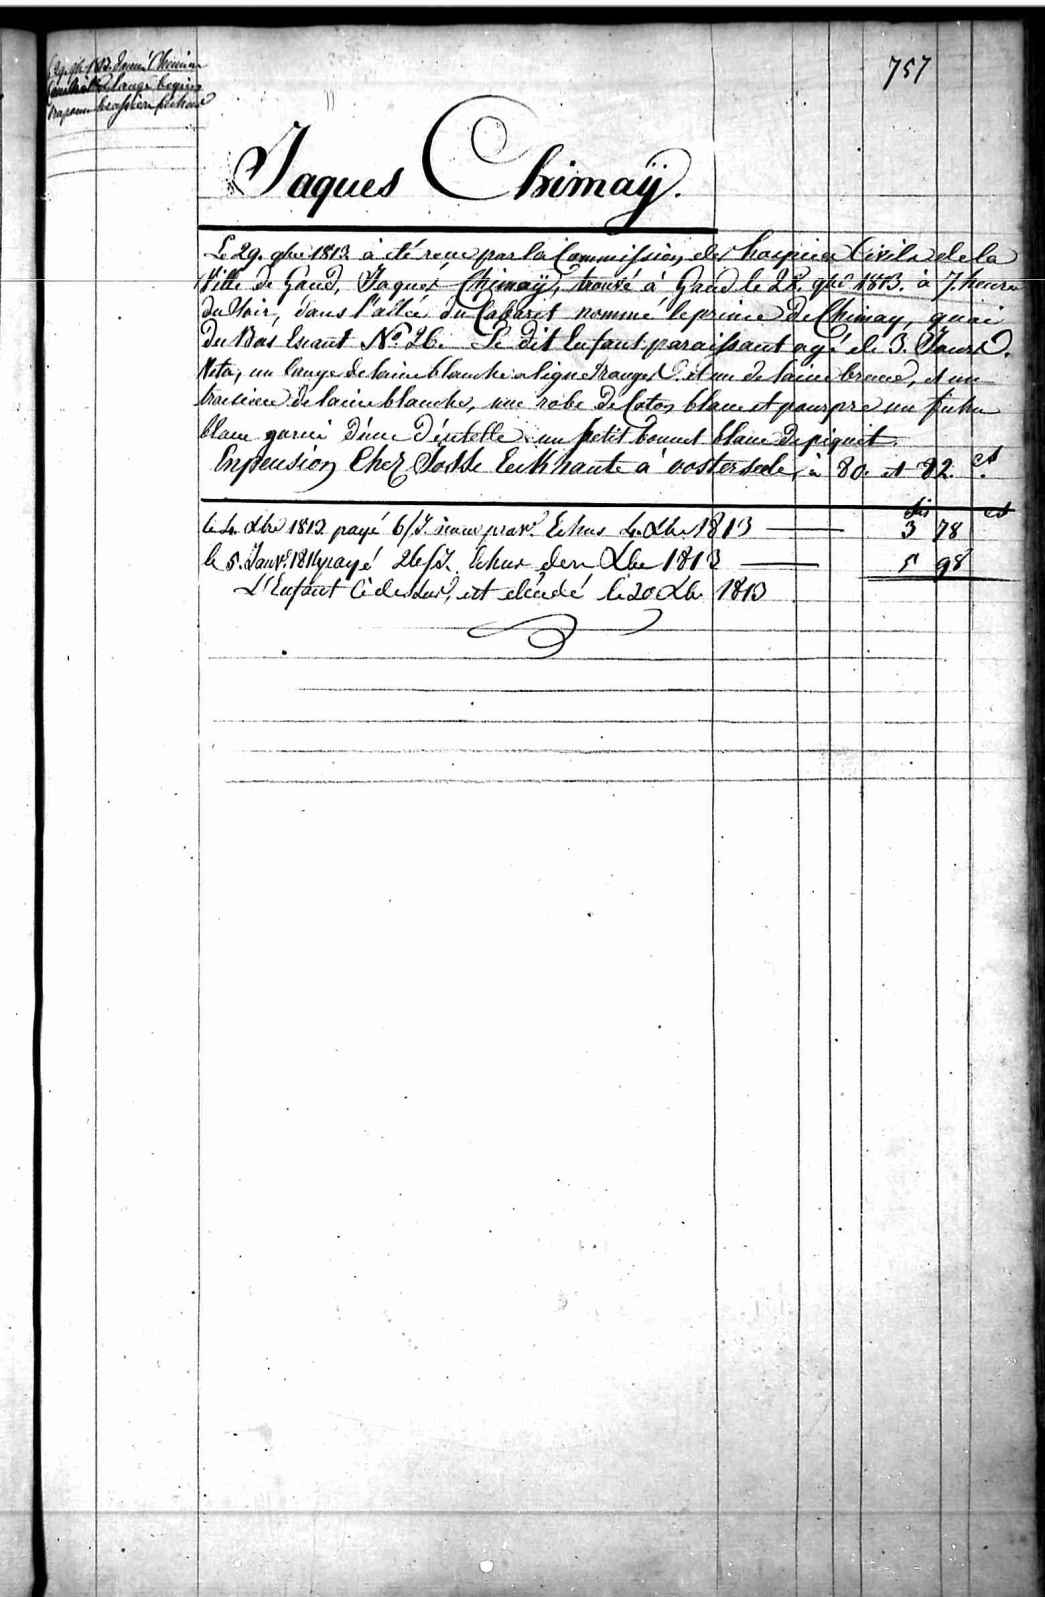 757
29. 9bre 1813. donné Chemise
lange beguin
brassiere fichu
Jaques Chimaÿ.
Le 29. 9bre 1813. à été recu par la Commission des hospices Civils de la
Ville de Gand, Jaques Chimaÿ, trouvé à Gand le 28. 9bre 1813. à 7. heures
du Soir, dans l'allée du Cabaret nommé le prince de Chimay, quai
du Bas Escaut No. 26. Le dit Enfant paraissant agé de 3. Jours.
Nota, un lange de laine blanche a lignes rouges et un de laine brune, et un
troisieme de laine blanche, une robe de Coton blanc et pourpre un fichu
blanc garni d'une déntelle un petit bonnet blanc de piquet.
Enpension Chez à oosterzeele, à 80. et 82. cs.
cs
le 4. Xbre 1813 payé 6/J. Echus 4. Xbre 1813 3 78
le 5. Janvr. 1814 payé 26/J. Echus den Xbre 1813 5 98
L'Enfant Cidessus, est décédé le 20 Xbre 1813